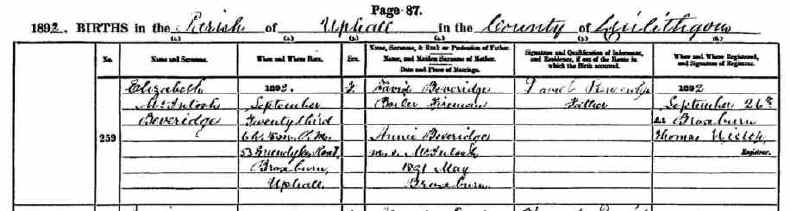 Page 87.
1892. BIRTHS in the Parish of Uphall in the County of Linlithgow
No.
Name and Surname.
When and Where Born.
Sex.
Name, Surname, & Rank or Profession of Father.
Name, and Maiden Surname of Mother.
Date and Place of Marriage.
Signature and Qualification of Informant,
and Residence, if out of the House in
which the Birth occurred.
When and Where Registered,
and Signature of Registrar.
259
Elizabeth
Beveridge
1892.
September
Twentythird
P.M.
53 Greendykes Road,
Broxburn,
Uphall.
F
David Beveridge
Boiler Fireman
Annie Beveridge
m.s.
1891 May
Broxburn
David Beveridge
Father
1892
September 26th
At Broxburn
Thomas
Registrar.